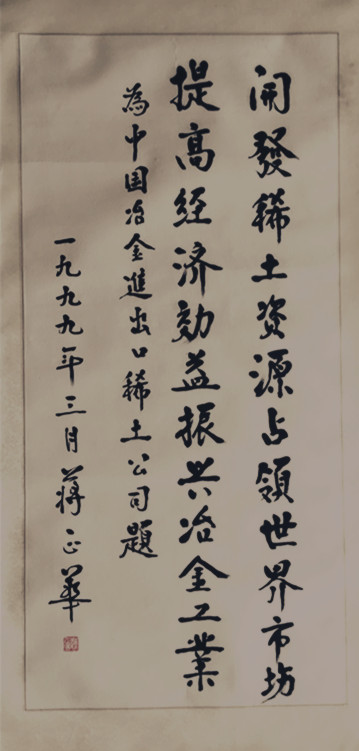 開發稀土資源占領世界市场
提高经济効益振兴冶金工業
為中国冶金進出口稀土公司題
一九九九年三月蒋正華